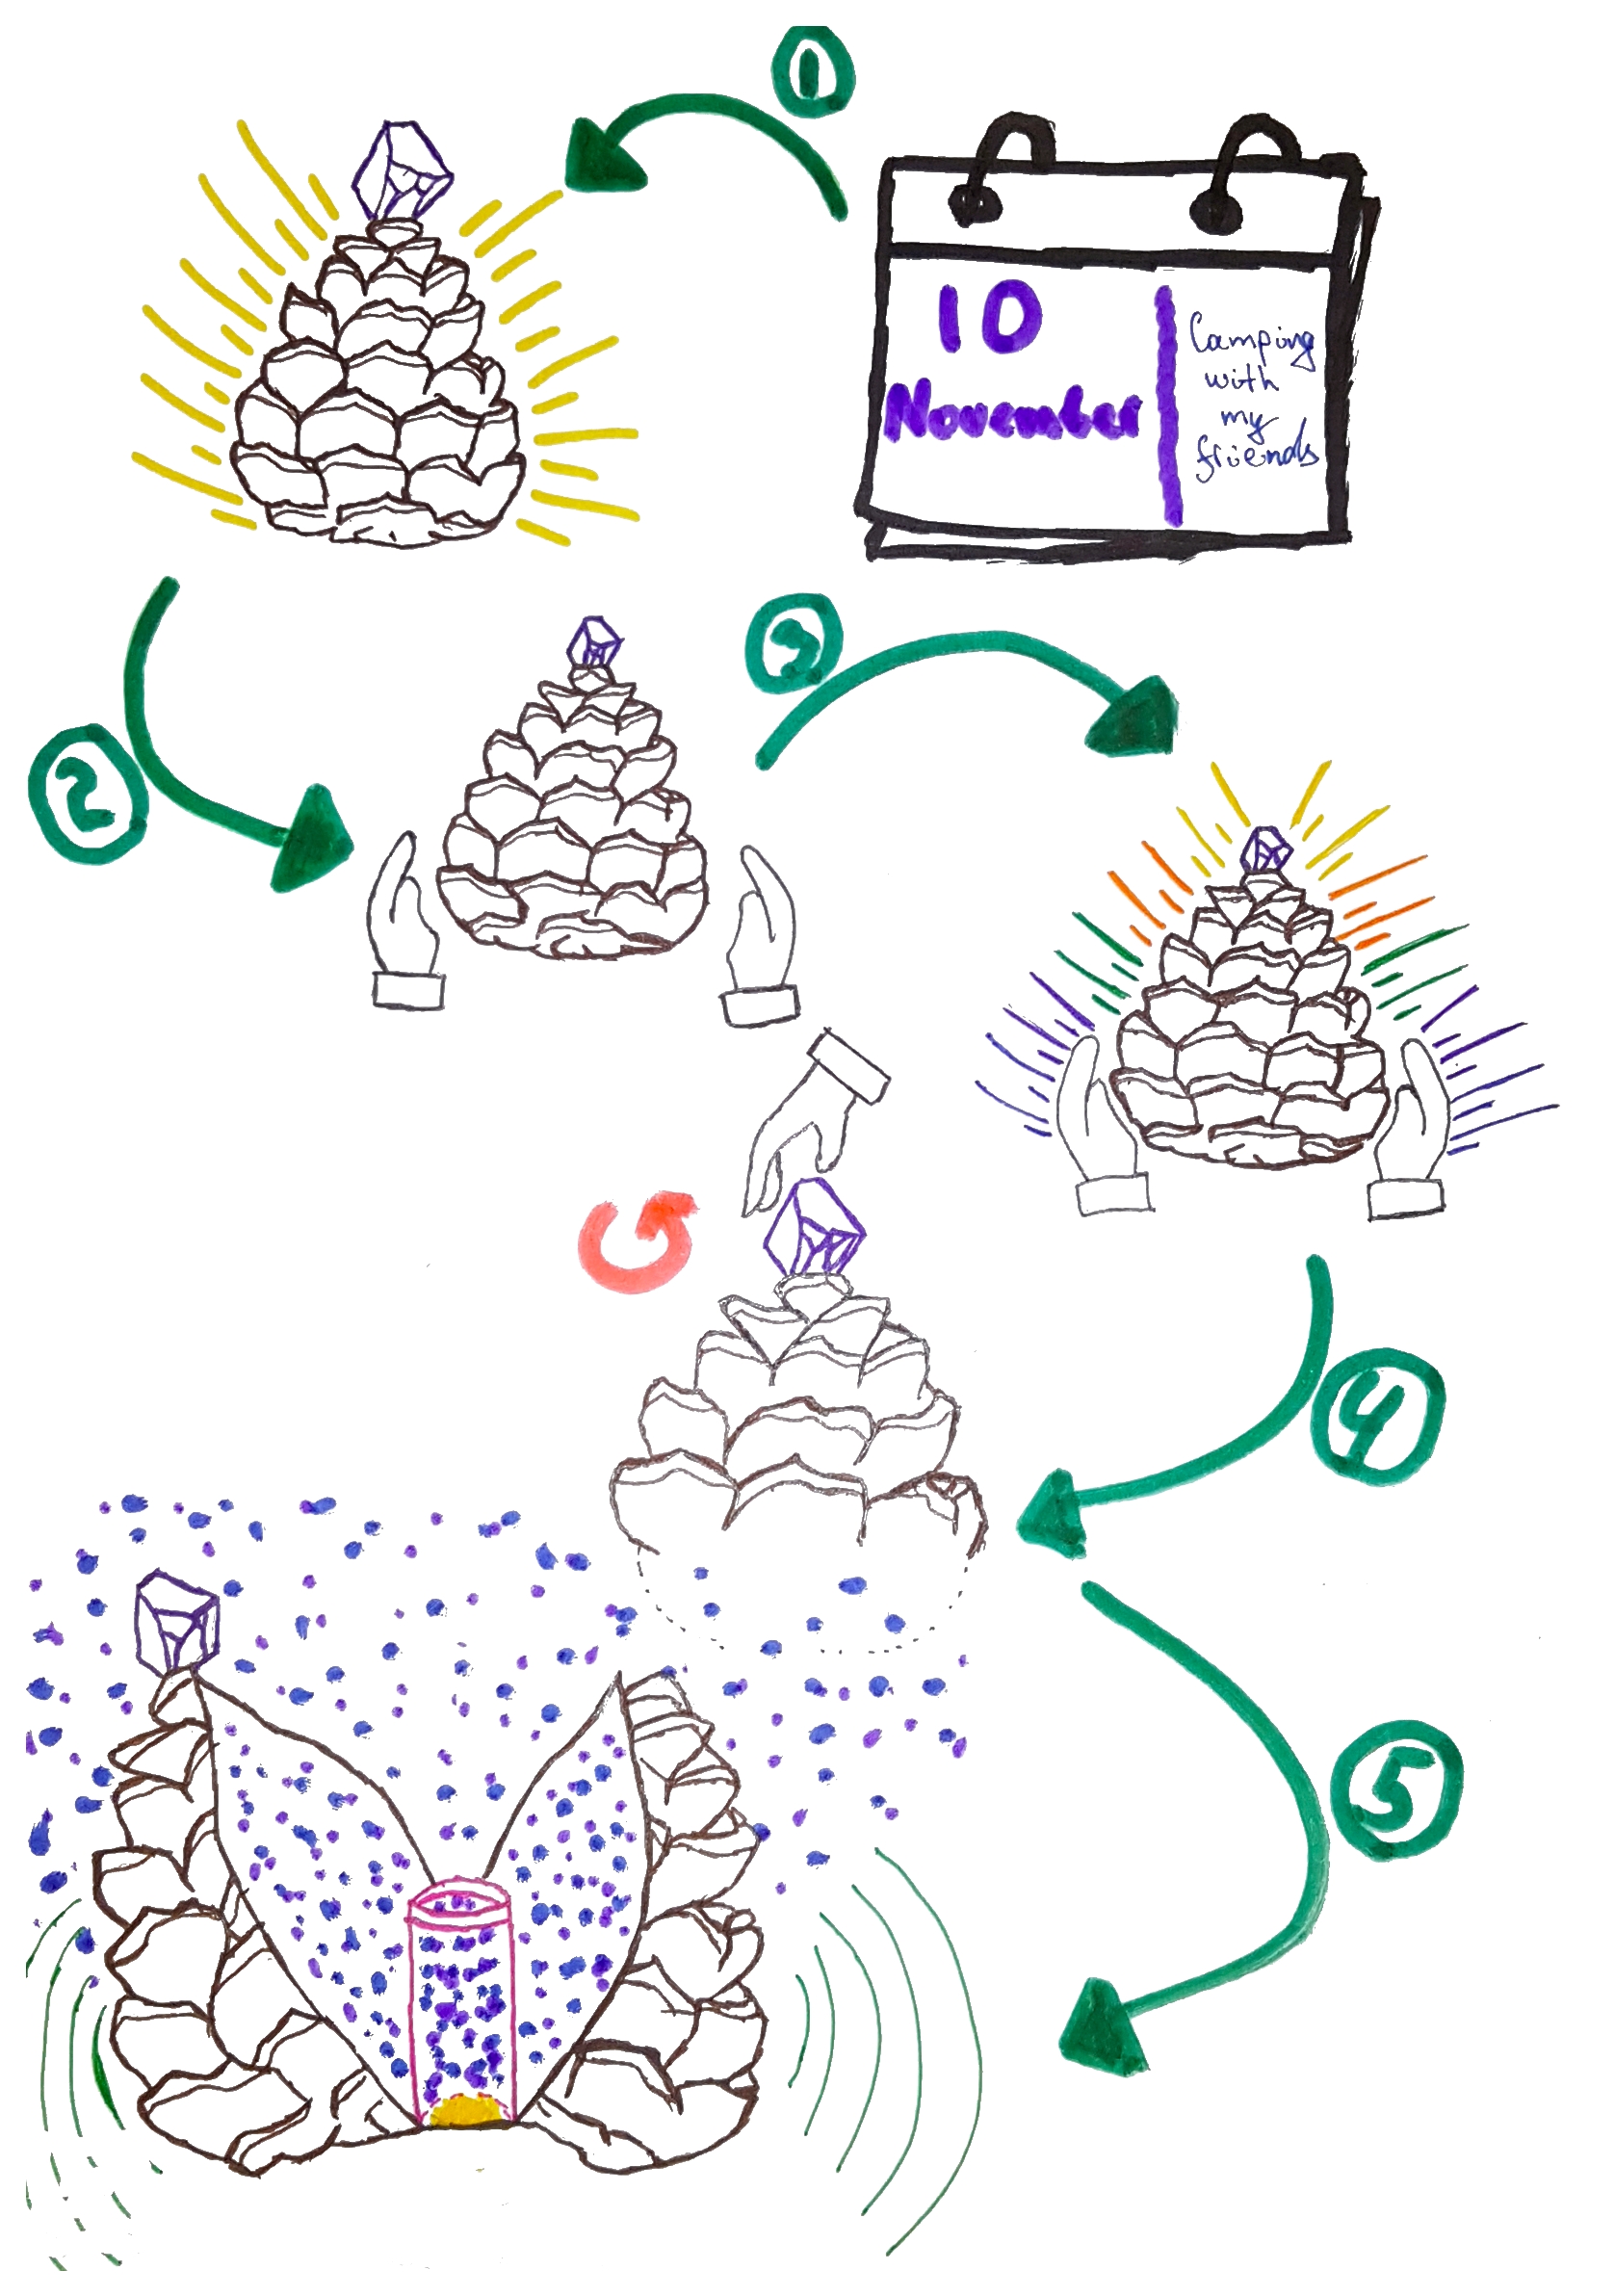 1
10
November
Camping
with
my
friends
2
3
4
5